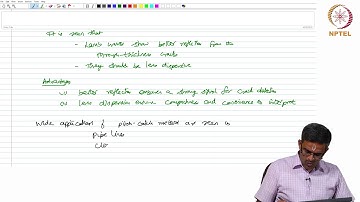 It is seen that
- Lamb waves show better reflection from the
through-thickness cracks
- They should be less dispersive
Advantages
(i) better reflection ensures a strong signal for crack detection
(ii) less dispersion ensures compactness and convenience to interpret
Wide application of pitch-catch method are seen in
Pipe lines
NPTEL